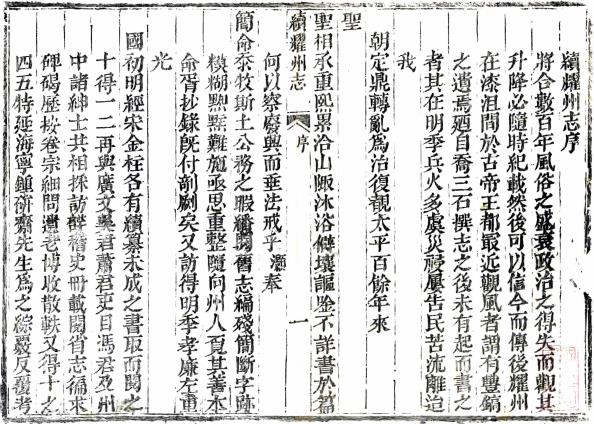 續耀州志序
將合數百年風俗之盛衰政治之得失而觀其
升降必隨時紀載然後可以信今而傳後耀州
在漆沮間於古帝王都最近觀風者謂有豐鎬
之遺焉廼自喬三石撰志之後未有起而書之
者其在明季兵火多虞災祲屢告民苦流離迨
我
朝定鼎轉亂為治復覩太平百餘年來
聖
聖相承重熙累洽山陬沐浴僻壤謳唫不詳書於篇
續耀州志
序
一
何以察廢興而垂法戒乎灝奉
簡命忝牧斯土公務之暇繙閱舊志編殘簡斷字跡
糢糊點黠難施亟思重整隨向州人覓其善本
命胥抄錄旣付剞劂矣又訪得明季孝廉左重
光
國初明經宋金桎各有續纂未成之書取而閱之
十得一二再與廣文吳君蕭君吏目馮君及州
中諸紳士共相採訪辭稽史冊載閱省志徧求
碑碣歷按卷宗細問遺老博收散軼又得十之
四五特延海寧鍾研齋先生為之綜覈反覆考